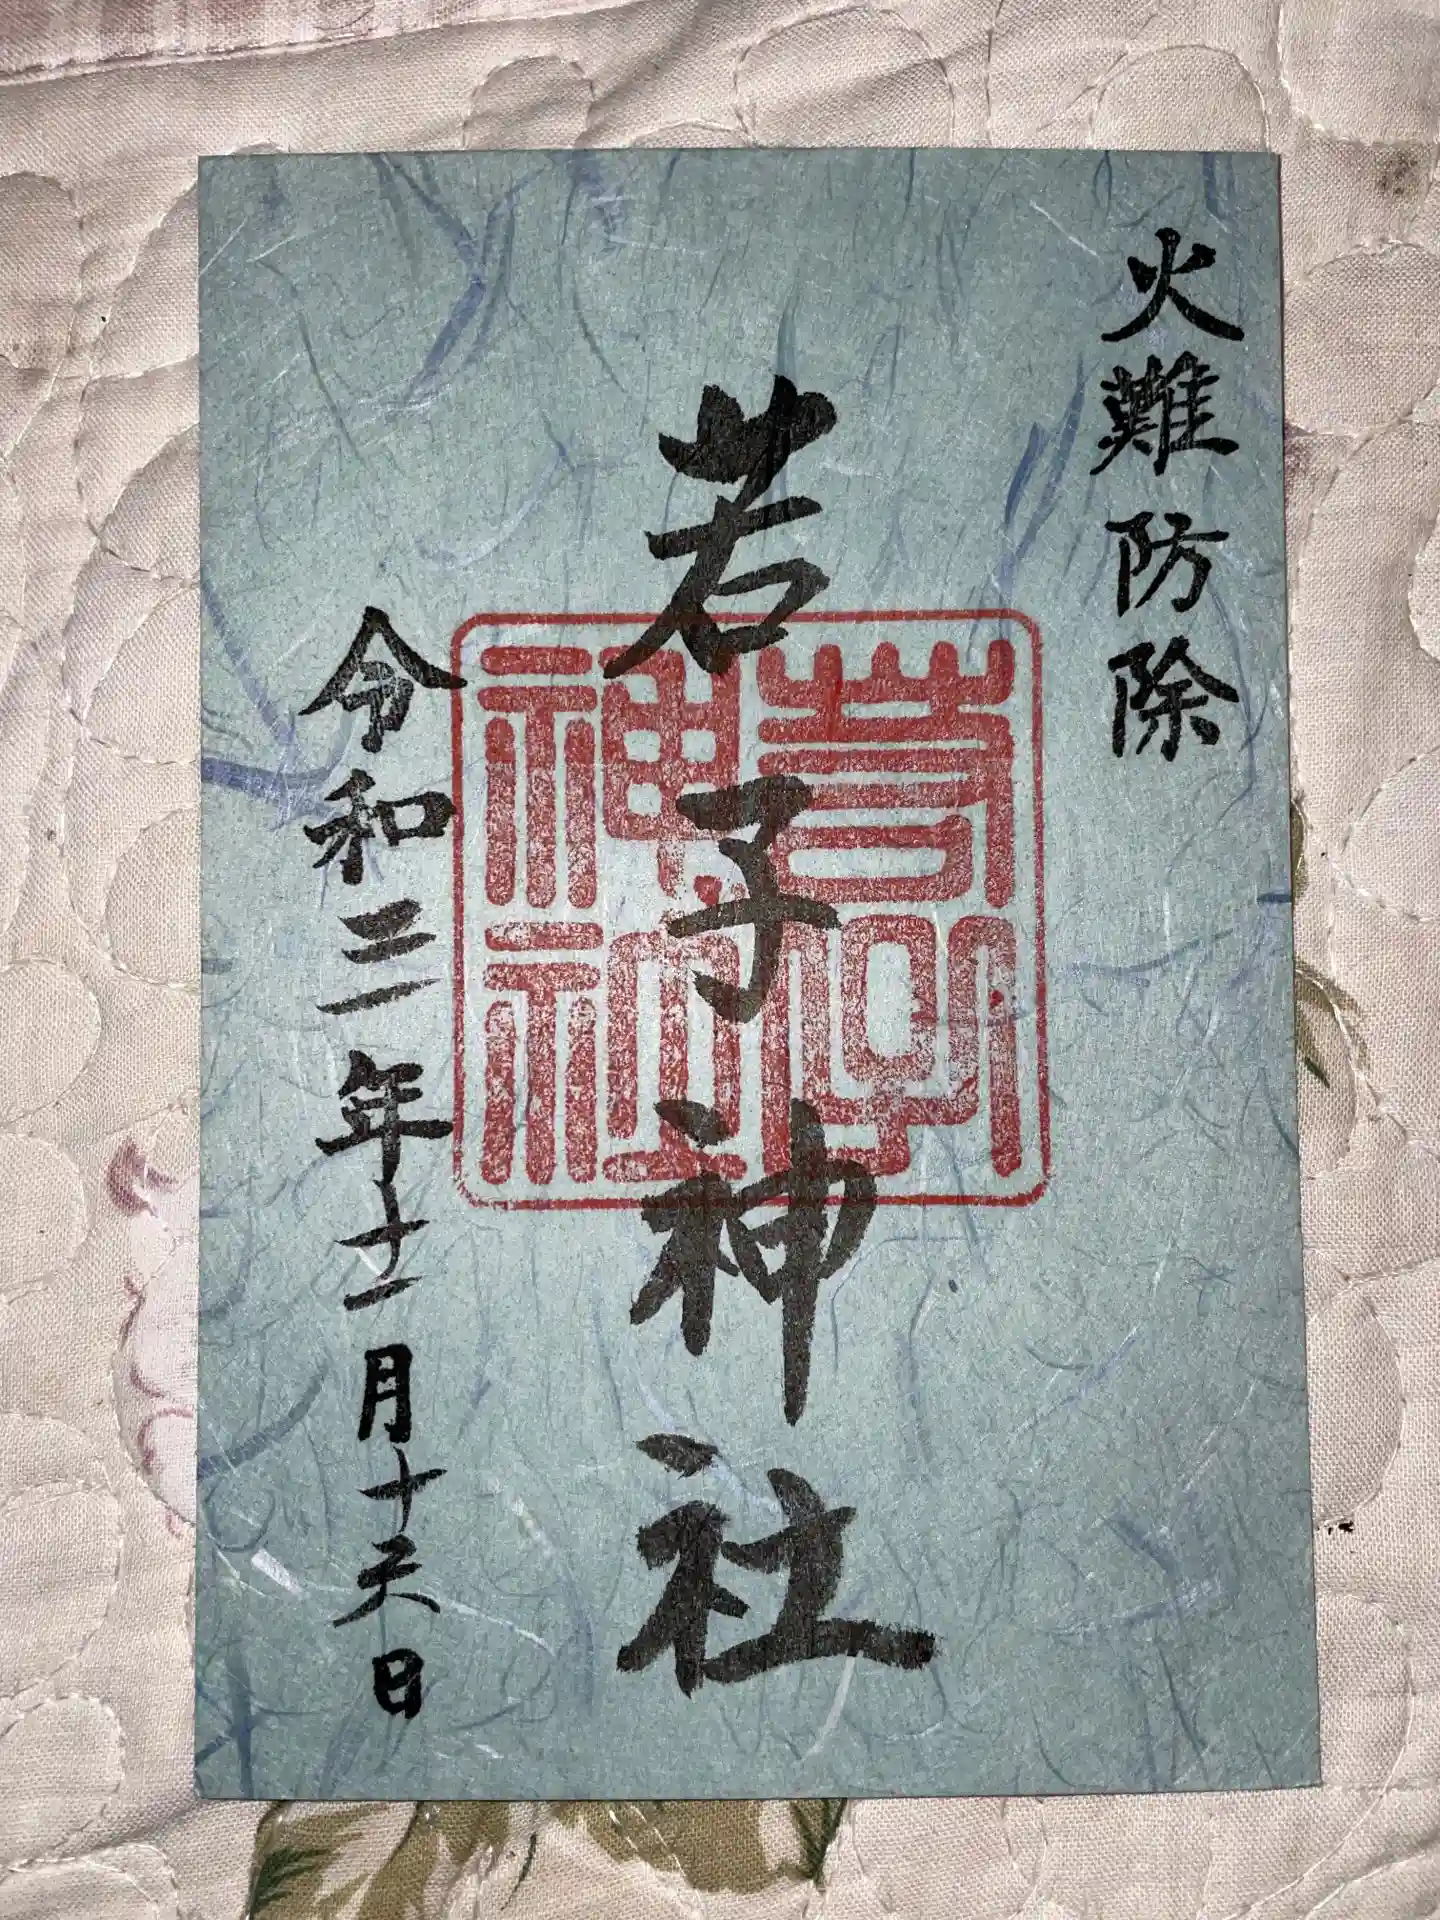 火難防除
若子神社
令和三年十一月十六日
若子
神社